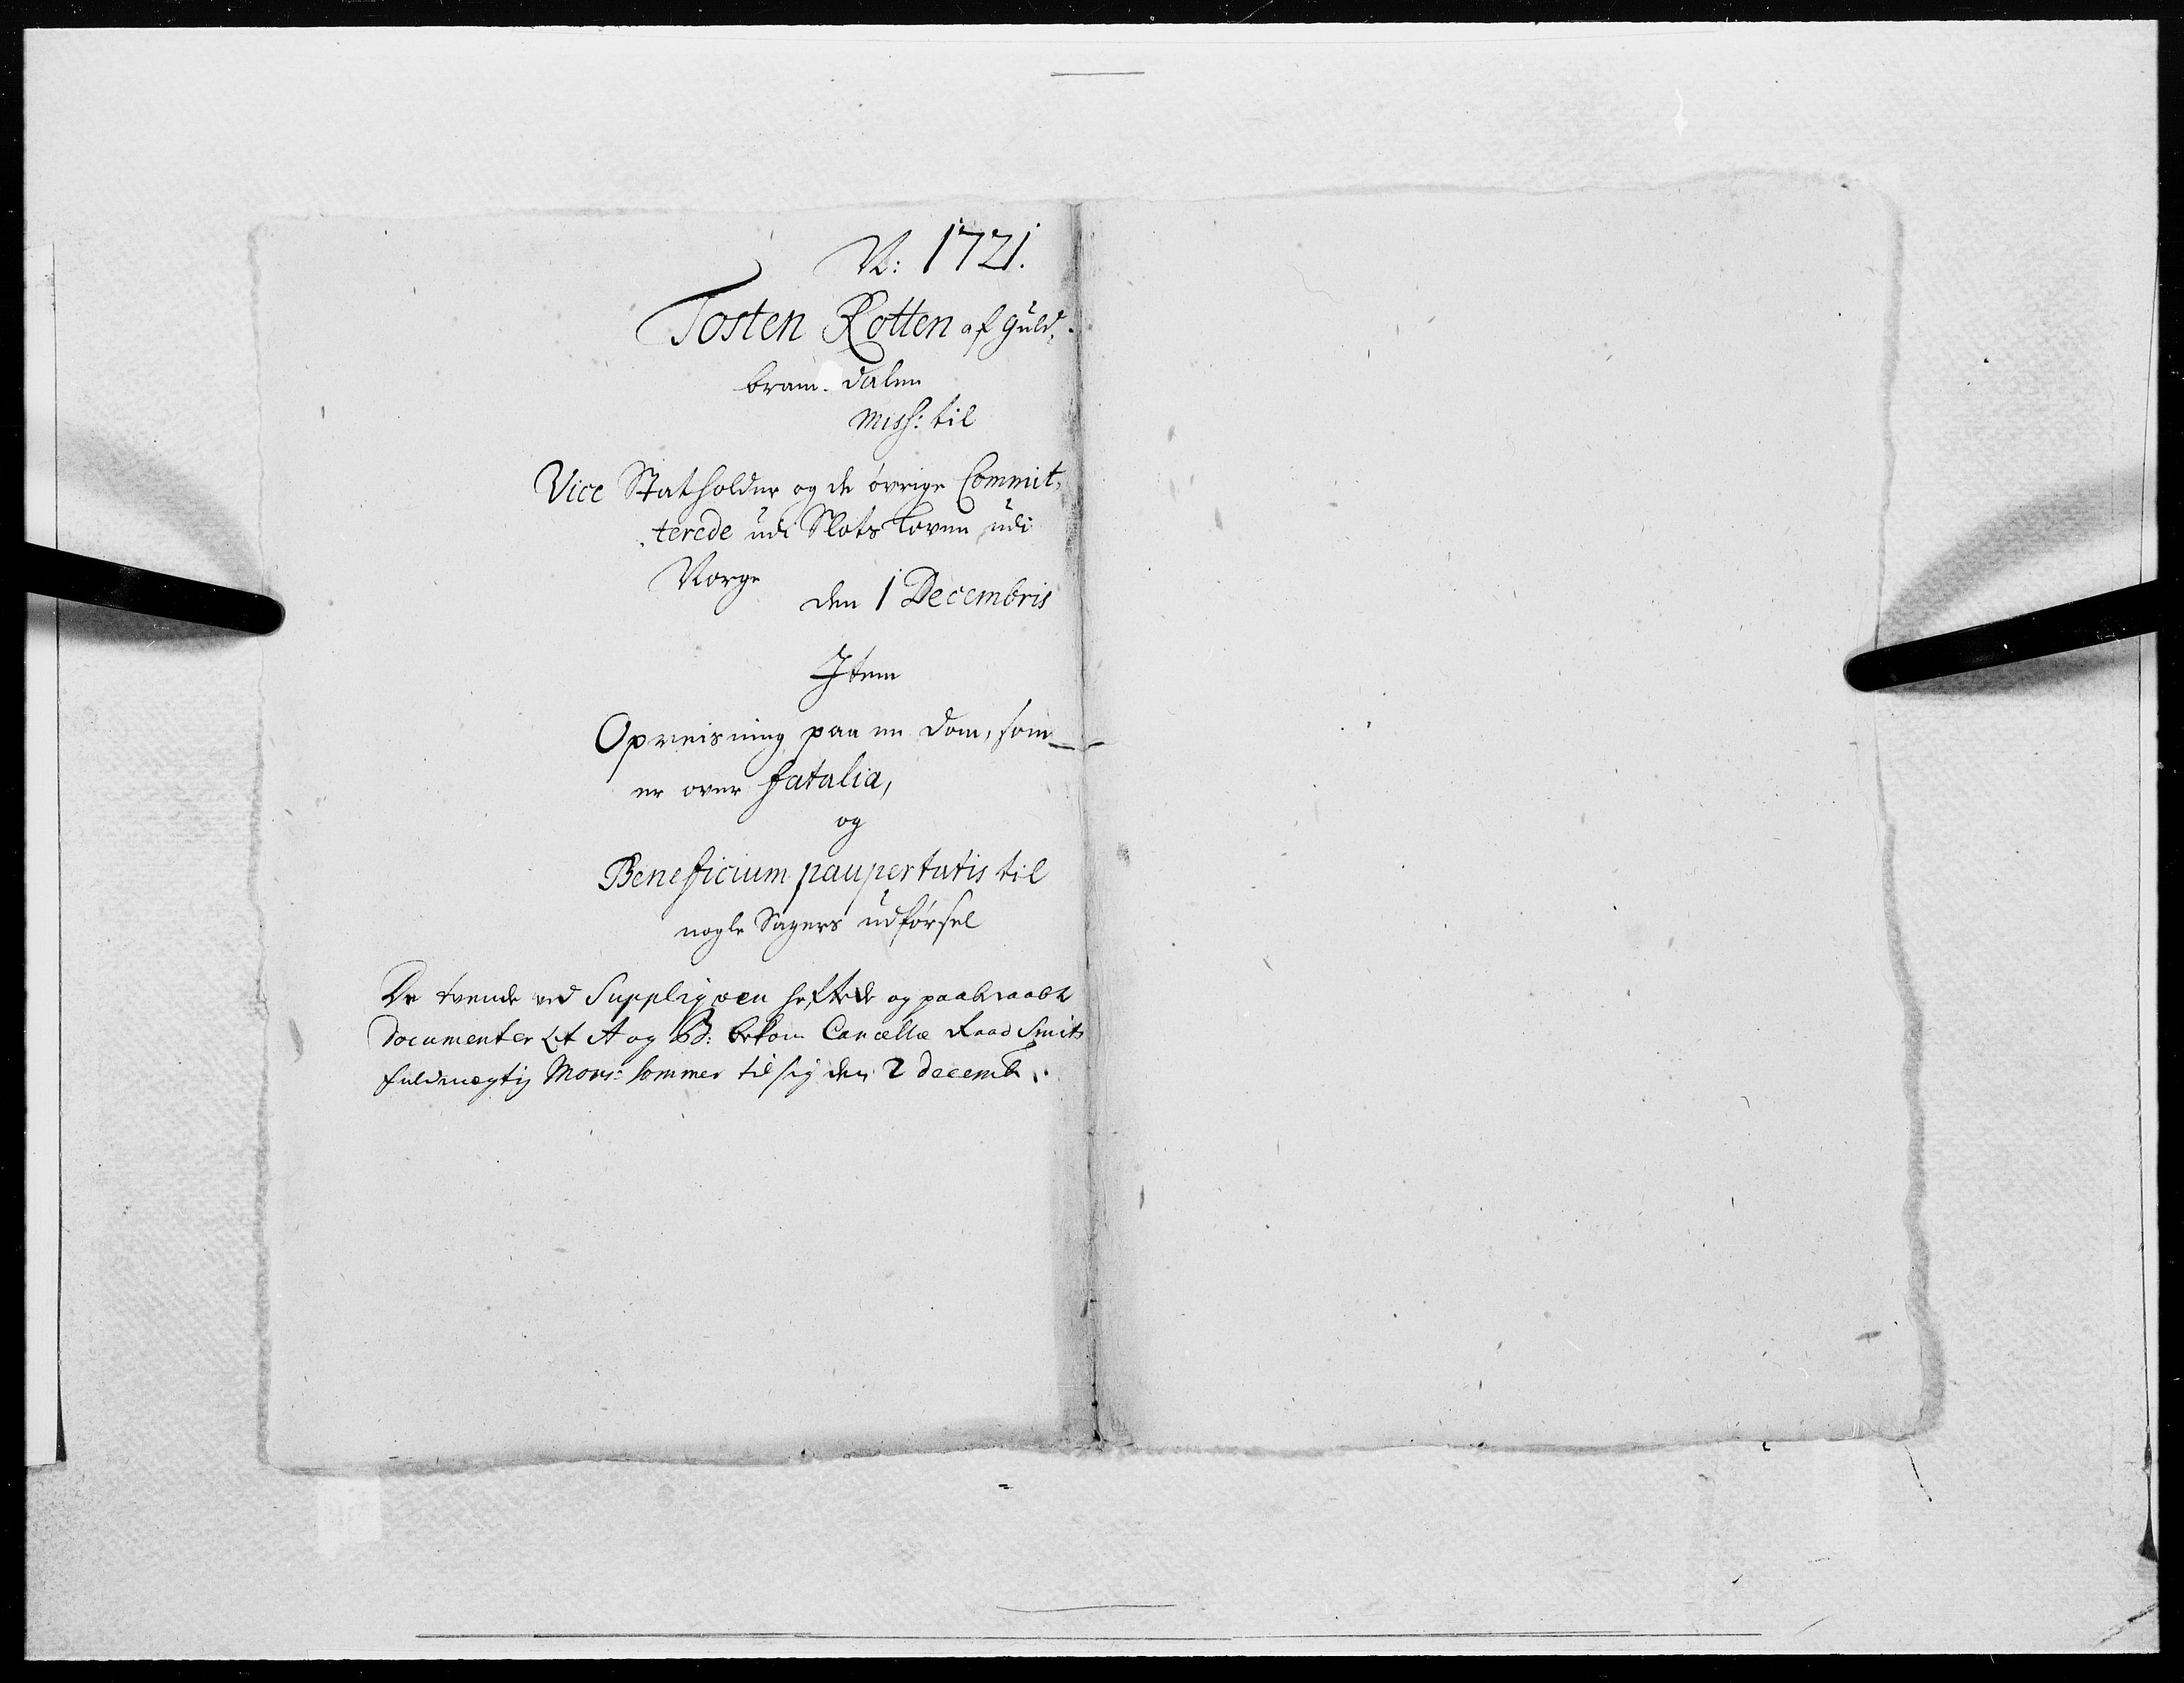 N: 1721.
Tosten Rotten af Guld,
bram. dalen
Miss: til
Vice Statholder og de øvrige Commit,
terede udi Slots Loven udi
Norge
den 1 Decembris
Item
Opreisning paa en dom, som
er over fatalia,
og
Beneficium paupertatis til
nogle Sagers udførsel
De tvende ved Suppliqven heftede og paabraabte
Documenter Lit A og B: bekom Cancellie Raad Smits
fuldmægtig Monsr: Sommer til sig den 2 decemb.